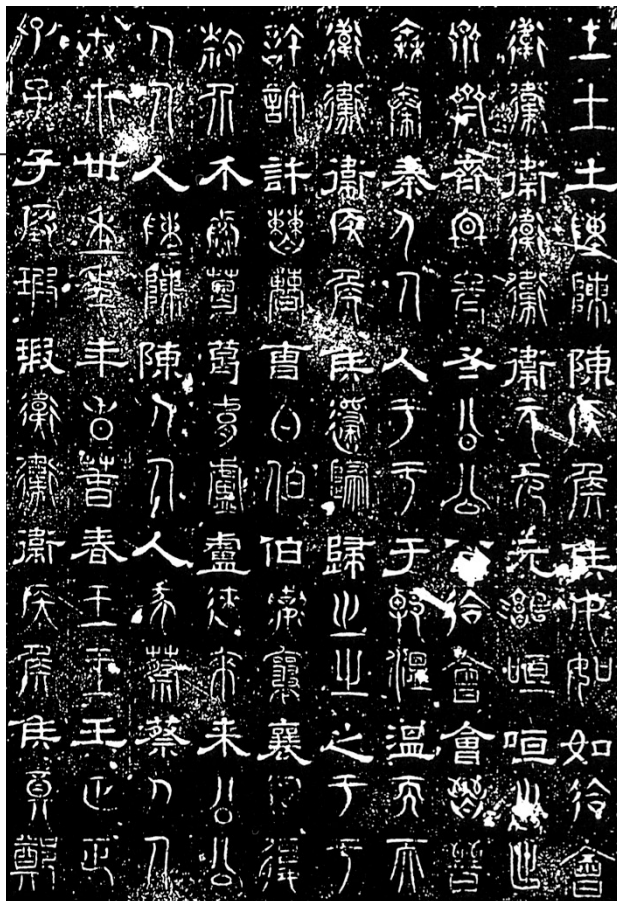 土土土陳陳陳侯侯侯如如如會會
衛衛衛衛衛衛元元元咺咺咺出出
齊齊齊冬冬冬公公公會會會晉晉
秦秦秦人人人于于于溫溫溫天天
衛衛衛侯侯侯歸歸歸之之之于于
許許許曹曹曹伯伯伯襄襄襄復復
介介介葛葛葛盧盧盧來來來公公
人人人陳陳陳人人人蔡蔡蔡人人
卅卅卅年年年春春春王王王正正
子子子瑕瑕瑕衛衛衛侯侯侯鄭鄭